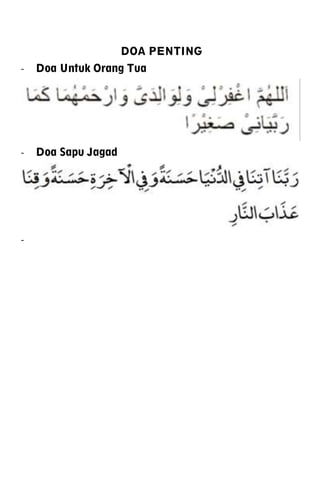 DOA PENTING
- Doa Untuk Orang Tua
اَللهُمَّ اغْفِرْلِيْ وَلِوَالِدَيَّ وَارْحَمْهُمَا كَمَا
رَبَّيَانِيْ صَغِيْرًا
- Doa Sapu Jagad
رَبَّنَا آتِنَا فِي الدُّنْيَا حَسَنَةً وَفِي الْآخِرَةِ حَسَنَةً وَقِنَا
عَذَابَ النَّارِ
-